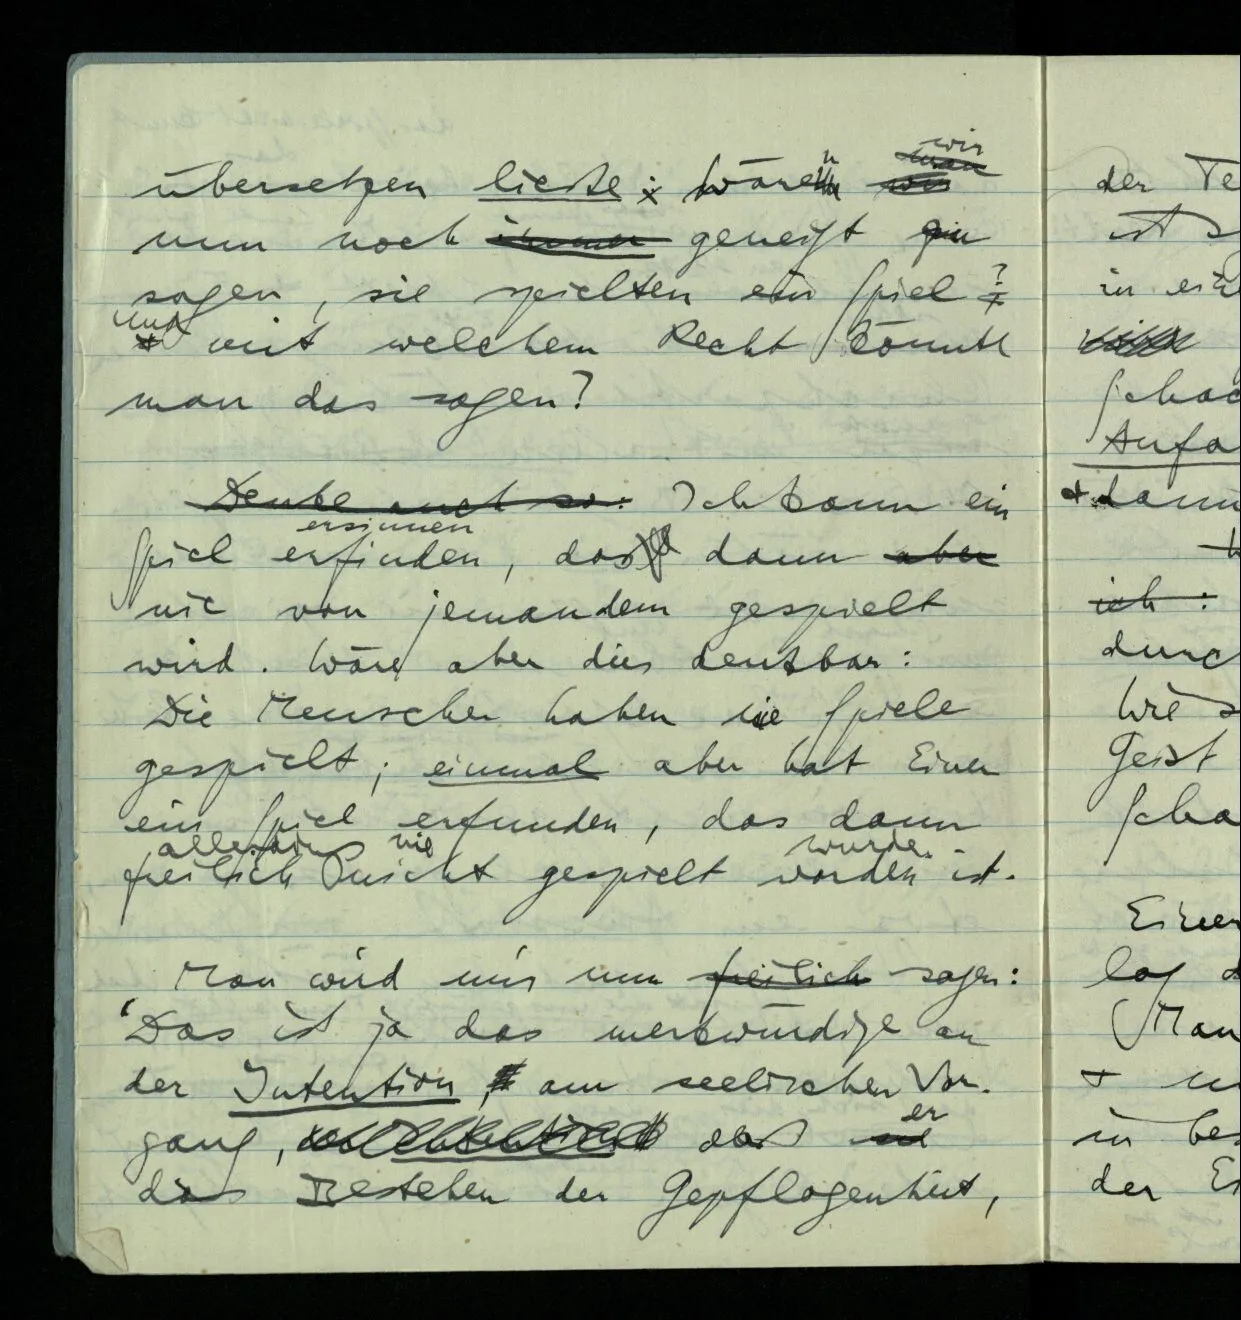 übersetzen ließe; wären wir
nun noch immer geneigt zu
sagen, sie spielten ein Spiel?
und mit welchem Recht könnte
man das sagen?
Denke auch so: Ich kann ein
ersinnen
Spiel erfinden, das dann aber
nie von jemandem gespielt
wird. Wäre aber dies denkbar:
Die Menschen haben nie Spiele
gespielt; einmal aber hat Einer
ein Spiel erfunden, das dann
allerdings nie wurde.
freilich nicht gespielt worden ist.
Man wird mir nun freilich sagen:
'Das ist ja das merkwürdige an
der Intention, am seelischen Vor-
gang, daß er
das Bestehen der Gepflogenheit,
der Te
ist
in ei
Schac
Anfa
+ dann
ich:
durc
Wie s
Geist
Scha
Einer
lag d
(Man
+ u
in bes
der E